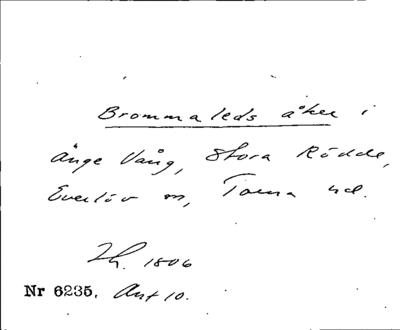 Brommaleds åker i
Änge Vång, Stora Rödde,
Everlöv sn, Torna hd.
Lh. 1806
Nr 6235. Akt 10.